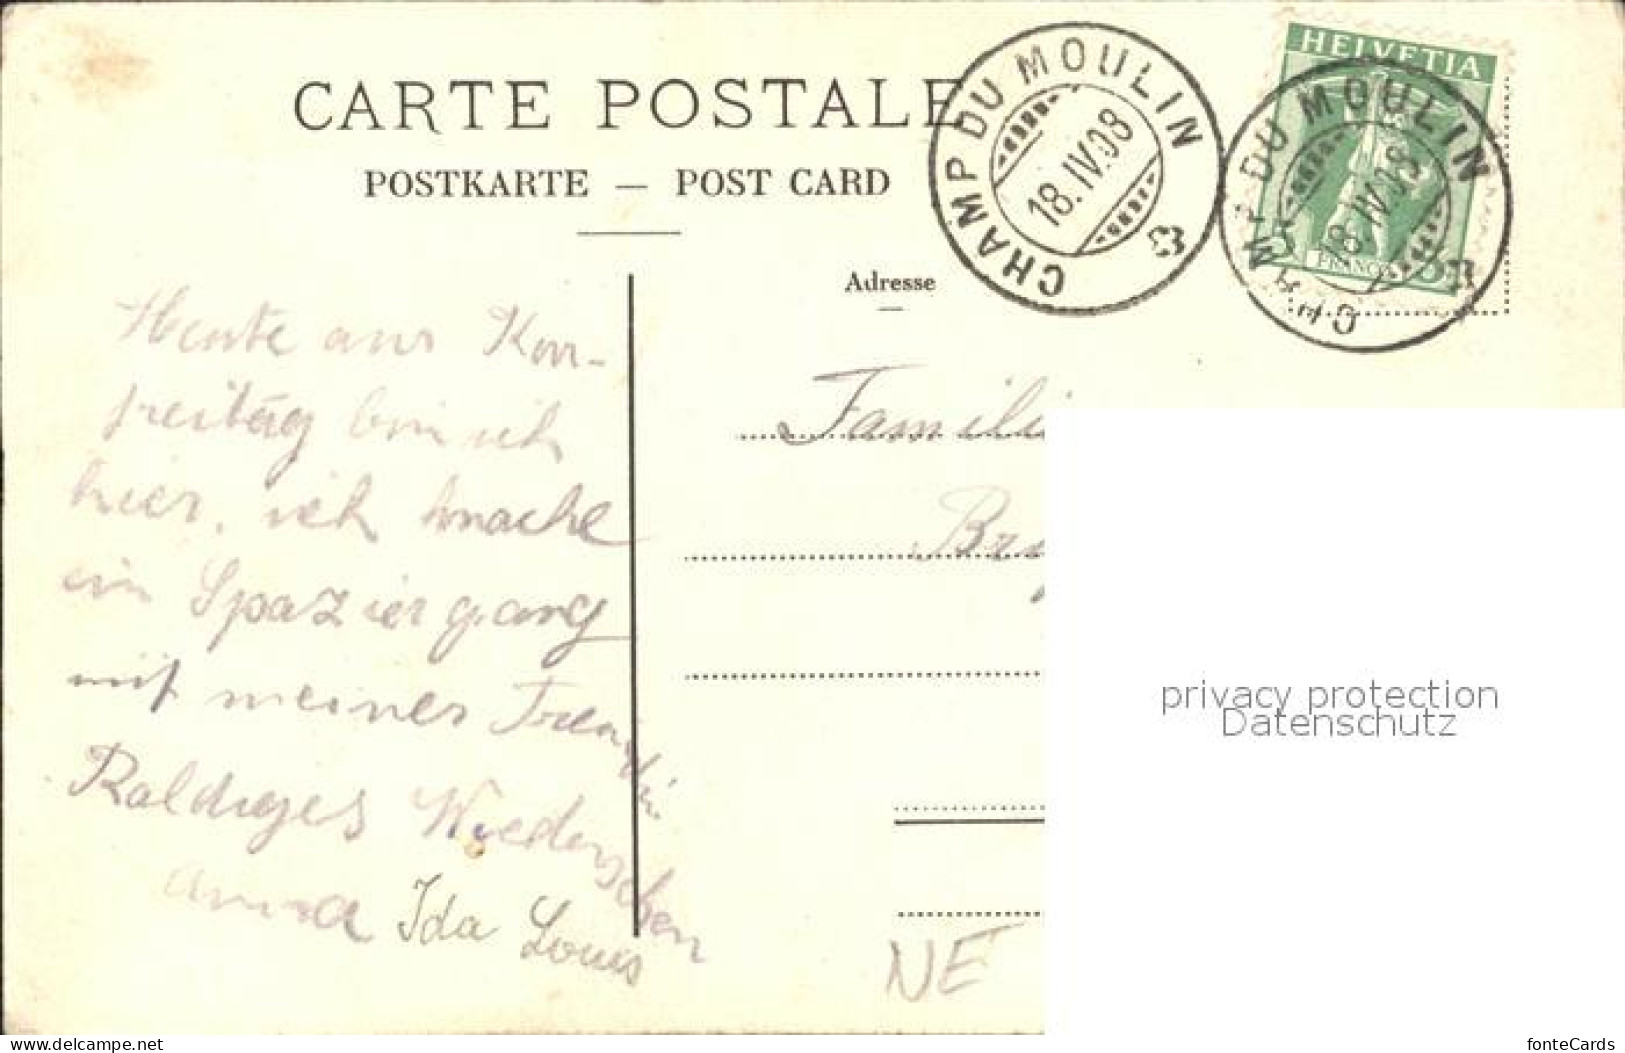 CARTE POSTALE
POSTKARTE — POST CARD
CHAMP DU MOULIN
18.IV.08
HELVETIA
FRANCO
5
CHAMP DU MOULIN
18.IV.08
Adresse
Heute am Karr-
freitag bin ich
hier, ich mache
ein Spaziergang
mit meiner Freundin
Baldiges Wiedersehen
Anna Ida Louis
Famili
Bry
NE
privacy protection
Datenschutz
delcampe.net
fonteCards